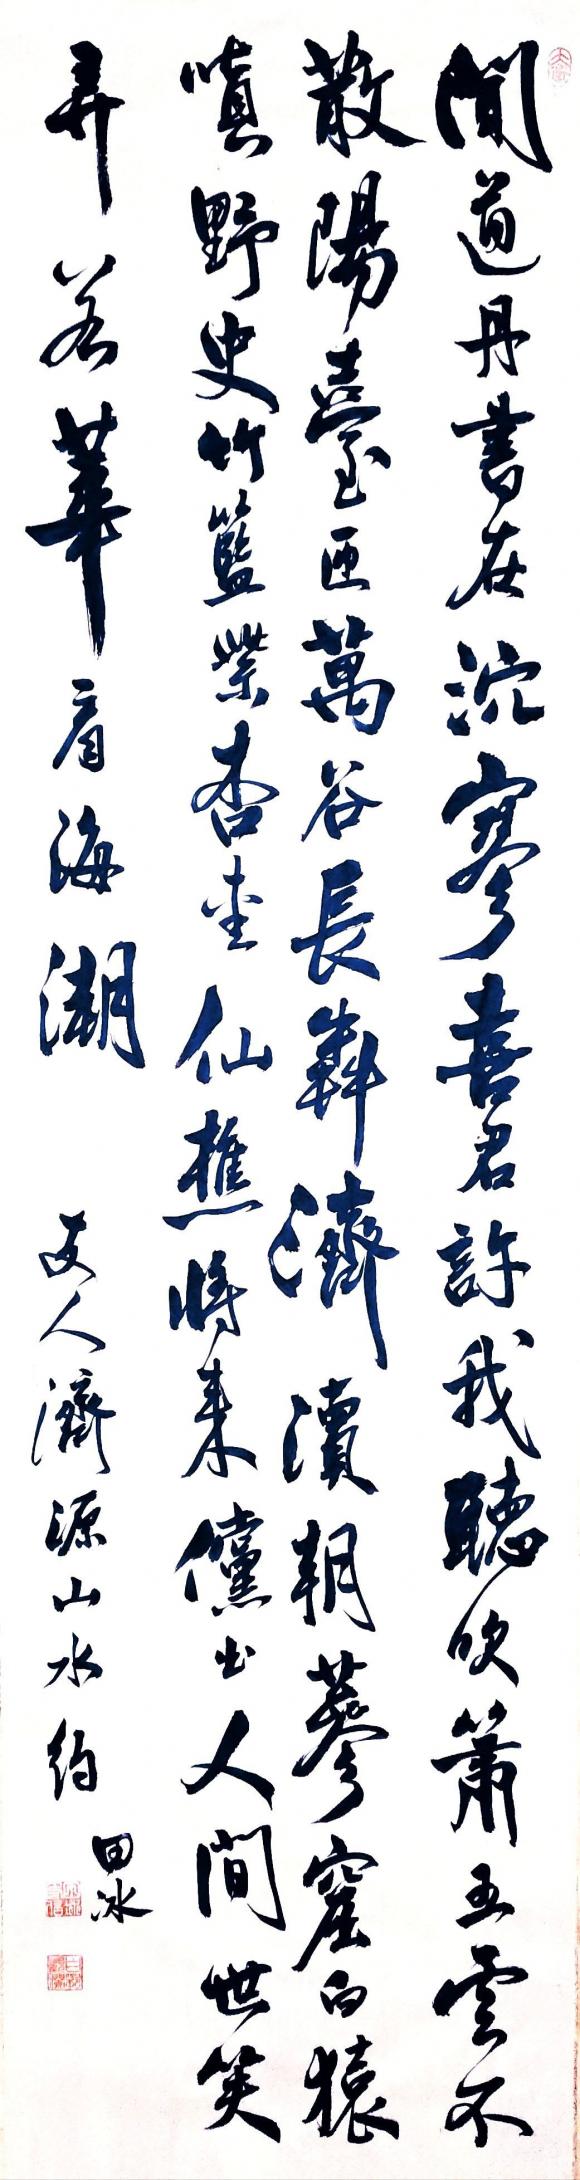 聞道丹書在泬寥喜君許我聽吹簫五雲不
散陽臺匝萬谷長犇濟瀆朝蔘窟白猿
嗔野史竹籃紫杏坐仙樵將來儻出人間世笑
弄若華看海潮
友人濟源山水約
田冰